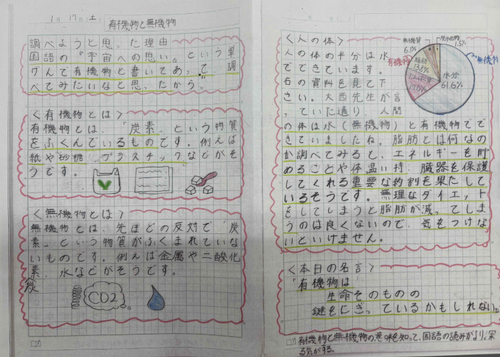 1月17日(土) 有機物と無機物
調べようと思った理由
国語の「宇宙への思い」という単
げんで有機物と書いてあって、調
べてみたいなと思ったから。
<有機物とは>
有機物とは、「炭素」という物質
をふくんでいるものです。例えば
紙や砂糖、プラスチックなどがそ
うです。
<無機物とは>
無機物とは、先ほどの反対で「炭
素」という物質がふくまれていな
いものです。例えば金属や二酸化
炭素、水などがそうです。
CO2
<人の体>
人の体の半分は水
でできています。
右の資料を見て下
さい。大西先生が言
っていた通り、人間
の体は水(無機物)と有機物でで
きていましたね。脂肪とは何なの
か調べてみると、エネルギーを貯
めることや体温い持、臓器を保護
してくれる重要な約割を果たして
いるそうです。無理なダイエット
をしてしまうと脂肪が減ってしま
うのは良くないので、気をつけな
いといけません。
無機質
有機物
脂肪
水分
61.6%
<本日の名言>
「有機物は
生命そのものの
謎をにぎっているかもしれない。」
有機物と無機物の意味を知って、国語の読みがより、深